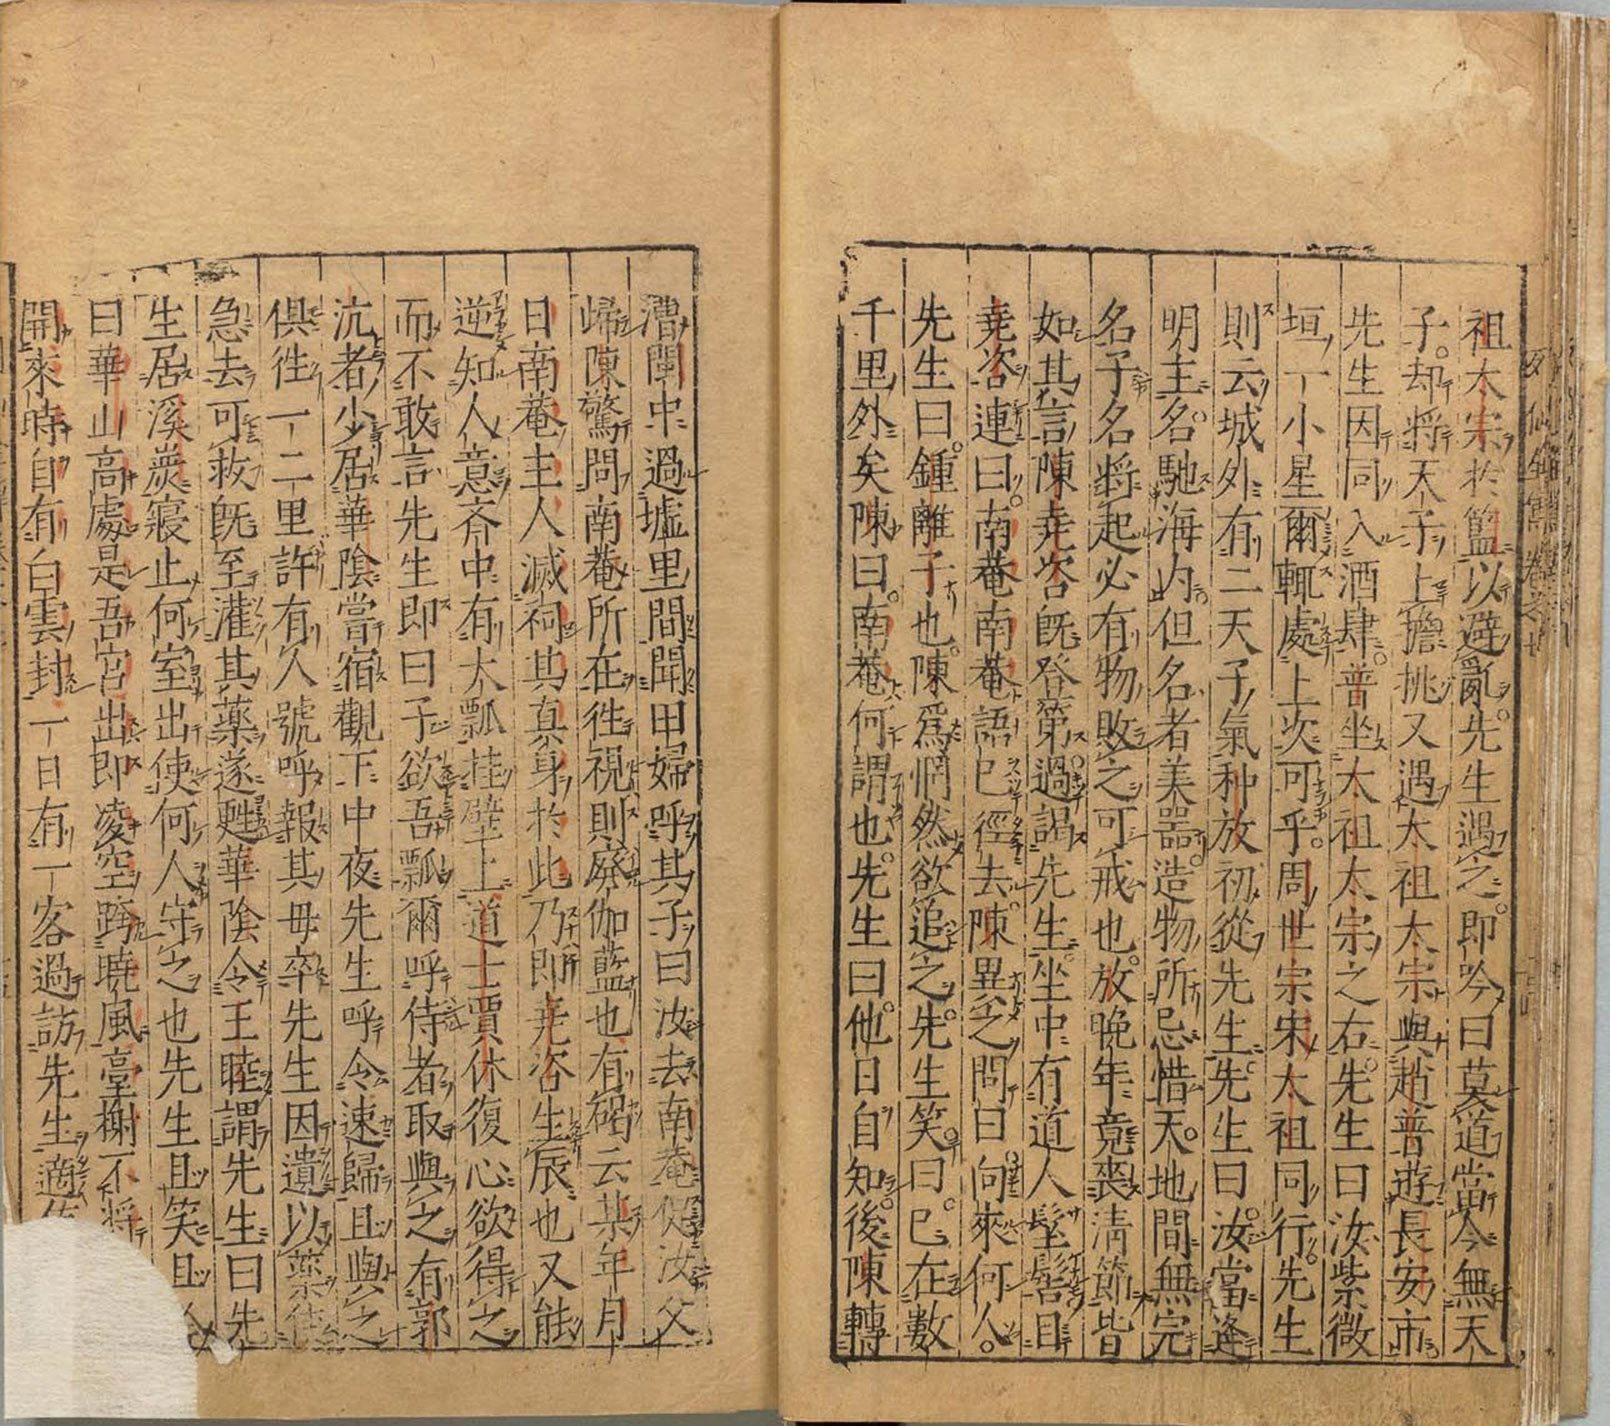 祖太宗於籃以避亂。先生遇之。即吟曰莫道當今無天
子。却將天子上擔挑又遇太祖太宗與趙普遊長安市
先生因同入酒肆。普坐太祖太宗之右。先生曰汝紫微
垣一小星爾輒處上次可乎。周世宗宋太祖同行。先生
則云城外有二天子氣种放初從先生。先生曰汝當逢
明主。名馳海内。但名者美噐。造物所忌惜。天地間無完
名子名將起必有物敗之可戒也。放晚年竟喪清節皆
如其言陳堯咨旣登第。過謁先生。坐中有道人髽髻目
堯咨連曰。南菴南菴語已徑去。陳異之問曰。向來何人。
先生曰。鍾離子也。陳爲惘然欲追之。先生笑。曰。已在數
千里外矣陳曰。南菴何謂也。先生曰。他日自知。後陳轉
漕閩中過墟里間聞田婦呼其子曰汝去南菴促汝父
歸陳驚問南菴所在徃視則廢伽藍也有碣云某年月
日南菴主人滅祠其真身於此乃即堯咨生辰也又能
逆知人意齋中有大瓢挂壁上道士賈休復心欲得之
而不敢言先生即曰子欲吾瓢爾呼侍者取與之有郭
沆者少居華陰嘗宿觀下中夜先生呼令速歸且與之
俱徃一二里許有人號呼報其母卒先生因遺以藥使
急去可救旣至灌其藥遂甦華陰令王睦謂先生曰先
生居溪巖寢止何室出使何人守之也先生且笑且
曰華山高處是吾宮出即凌空跨曉風臺榭不將
開來時自有白雲封一日有一客過訪先生適